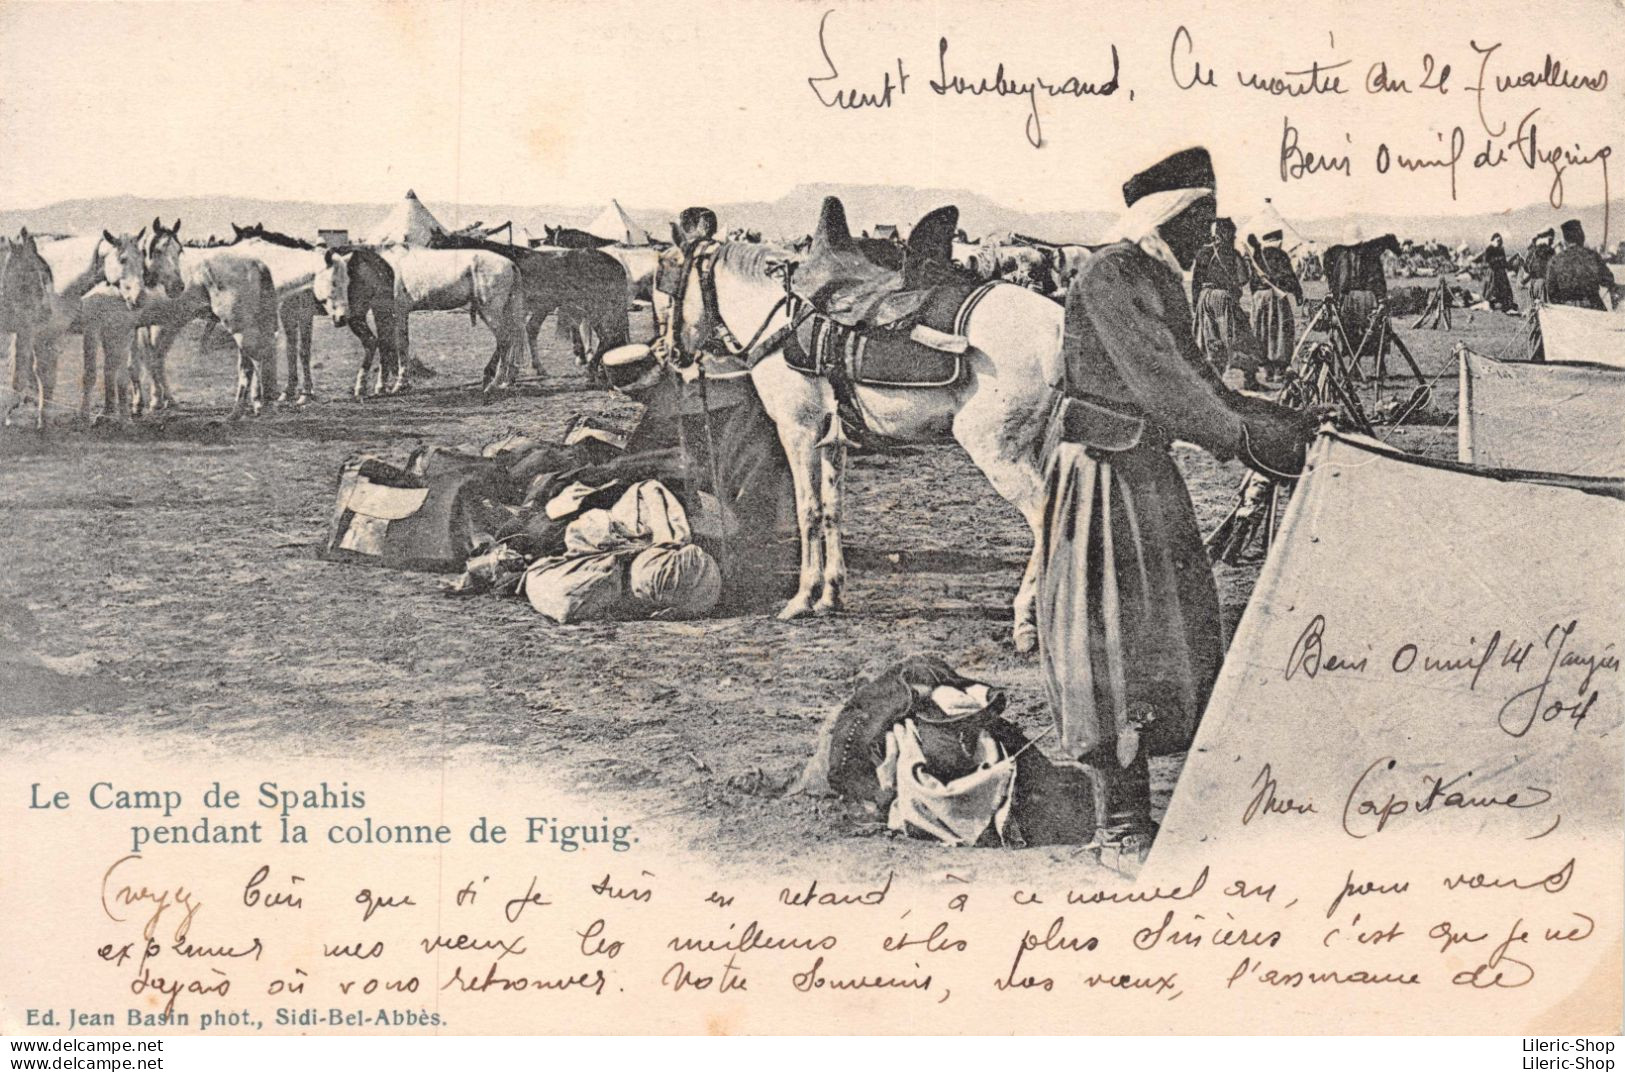 Lieut^t Soubeyrand, Cie montée du 2e Tirailleurs
Beni Ounif de Figuig
Beni Ounif 14 Janvier
04
Mon Capitaine,
Le Camp de Spahis
pendant la colonne de Figuig.
Croyez bien que si je suis en retard, à ce nouvel an, pour vous
exprimer mes vœux les meilleurs et les plus sincères c'est que je ne
savais où vous retrouver. Votre souvenir, vos vœux, l'assurance de
Ed. Jean Basin phot., Sidi-Bel-Abbès.
www.delcampe.net
www.delcampe.net
Lileric-Shop
Lileric-Shop